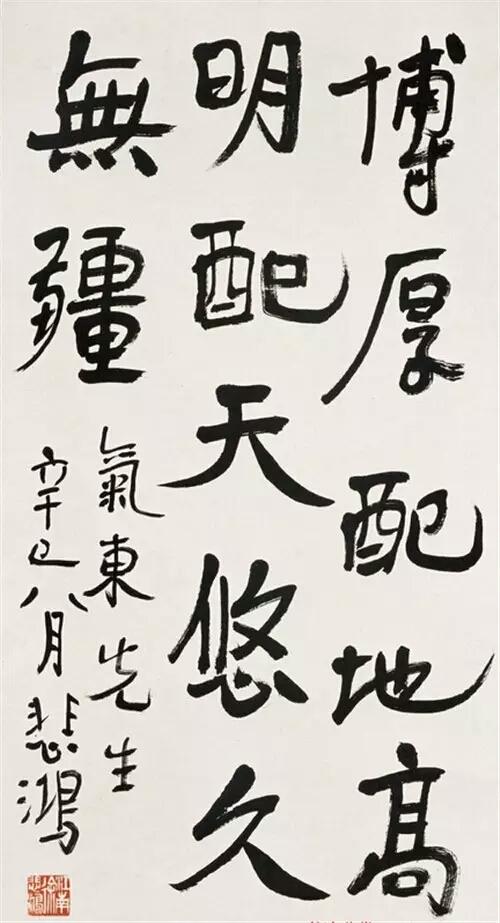 博厚配地高
明配天悠久
無疆
氣東先生
辛巳八月悲鴻